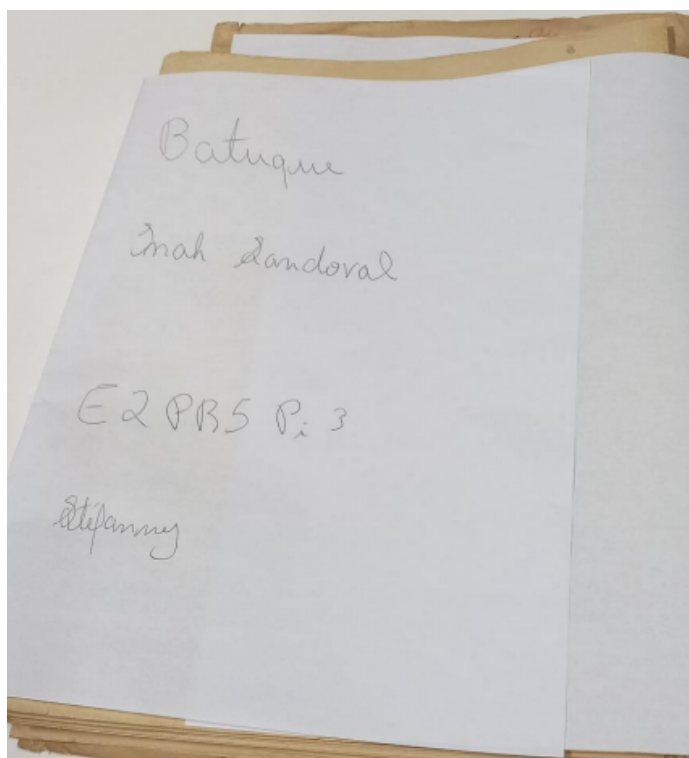 Batuque
Inah Sandoval
E2 PB5 Pi 3
Stefanny